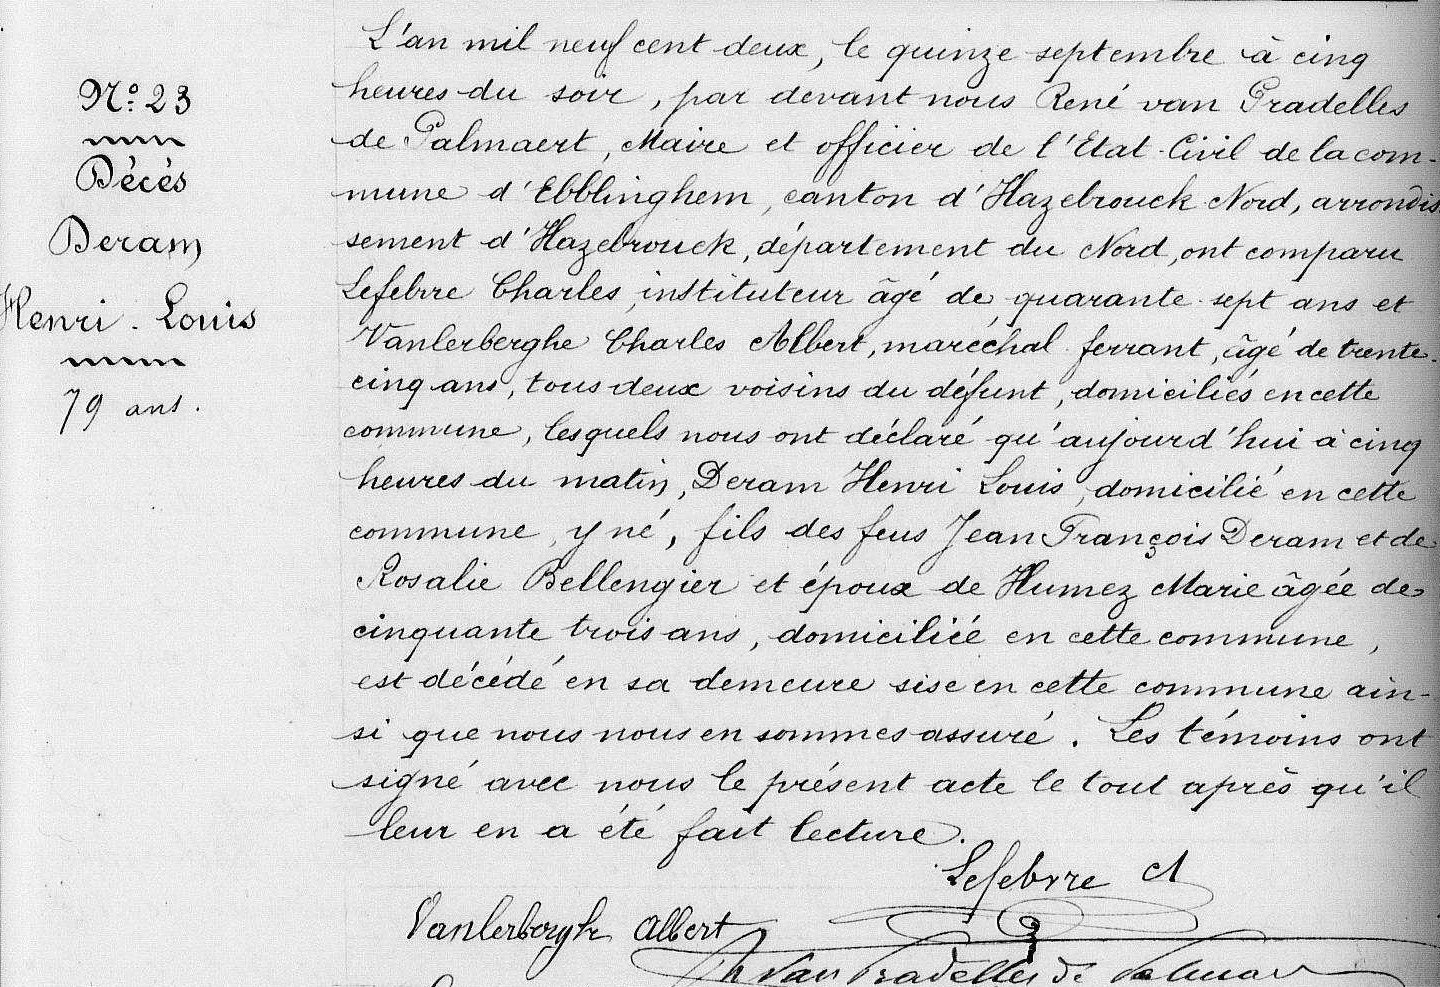 N.º 23
Décés
Deram
Henri. Louis
79 ans.
L'an mil neuf cent deux, le quinze septembre à cinq
heures du soir, par devant nous René van Pradelles
de Palmaert, Maire et officier de l'Etat-Civil de la com-
mune d'Ebblinghem, canton d'Hazebrouck Nord, arrondis
sement d'Hazebrouck, département du Nord, ont comparu
Lefebvre Charles, instituteur âgé de quarante-sept ans et
Vanlerberghe Charles Albert, maréchal-ferrant, âgé de trente-
cinq ans, tous deux voisins du défunt, domiciliés en cette
commune, lesquels nous ont déclaré qu'aujourd'hui à cinq
heures du matin, Deram Henri Louis, domicilié en cette
commune, y né, fils des feus Jean François Deram et de
Rosalie Bellengier et époux de Humez Marie âgée de
cinquante trois ans, domiciliée en cette commune,
est décédé en sa demeure sise en cette commune ain-
si que nous nous en sommes assuré. Les témoins ont
signé avec nous le présent acte le tout après qu'il
leur en a été fait lecture.
Lefebvre
Vanlerberghe Albert
van Pradelles de Palmaer